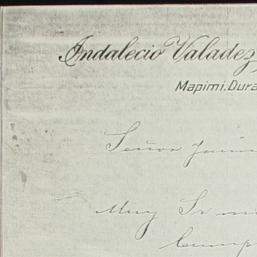 Indalecio Valadez,
Mapimi. Dura
Señor
Muy Sr mi